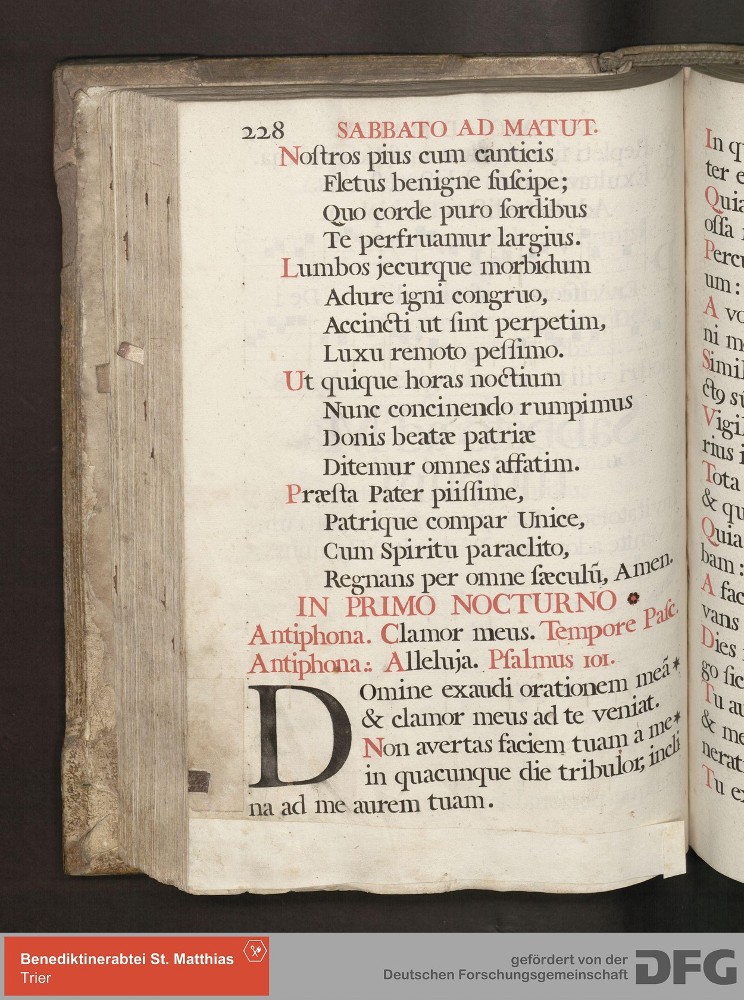 228 SABBATO AD MATUT.
Noſtros pius cum canticis
Fletus benigne ſuſcipe;
Quo corde puro ſordibus
Te perfruamur largius.
Lumbos jecurque morbidum
Adure igni congruo,
Accincti ut ſint perpetim,
Luxu remoto peſſimo.
Ut quique horas noctium
Nunc concinendo rumpimus
Donis beatæ patriæ
Ditemur omnes affatim.
Præſta Pater piiſſime,
Patrique compar Unice,
Cum Spiritu paraclito,
Regnans per omne ſæculū, Amen.
IN PRIMO NOCTURNO
Antiphona. Clamor meus. Tempore Paſc.
Antiphona.: Alleluja. Pſalmus 101.
Domine exaudi orationem meā *
& clamor meus ad te veniat.
Non avertas faciem tuam à me *
in quacunque die tribulor, incli
na ad me aurem tuam.
In q
ter e
Quia
oſſa
Percu
um:
A vo
ni m
Simil
ct9 sū
Vigil
rius i
Tota
& qu
Quia
bam:
A fac
vans
Dies
go ſic
Tu au
& me
nerat
Tu ex
Benediktinerabtei St. Matthias
Trier
gefördert von der
Deutschen Forschungsgemeinschaft DFG